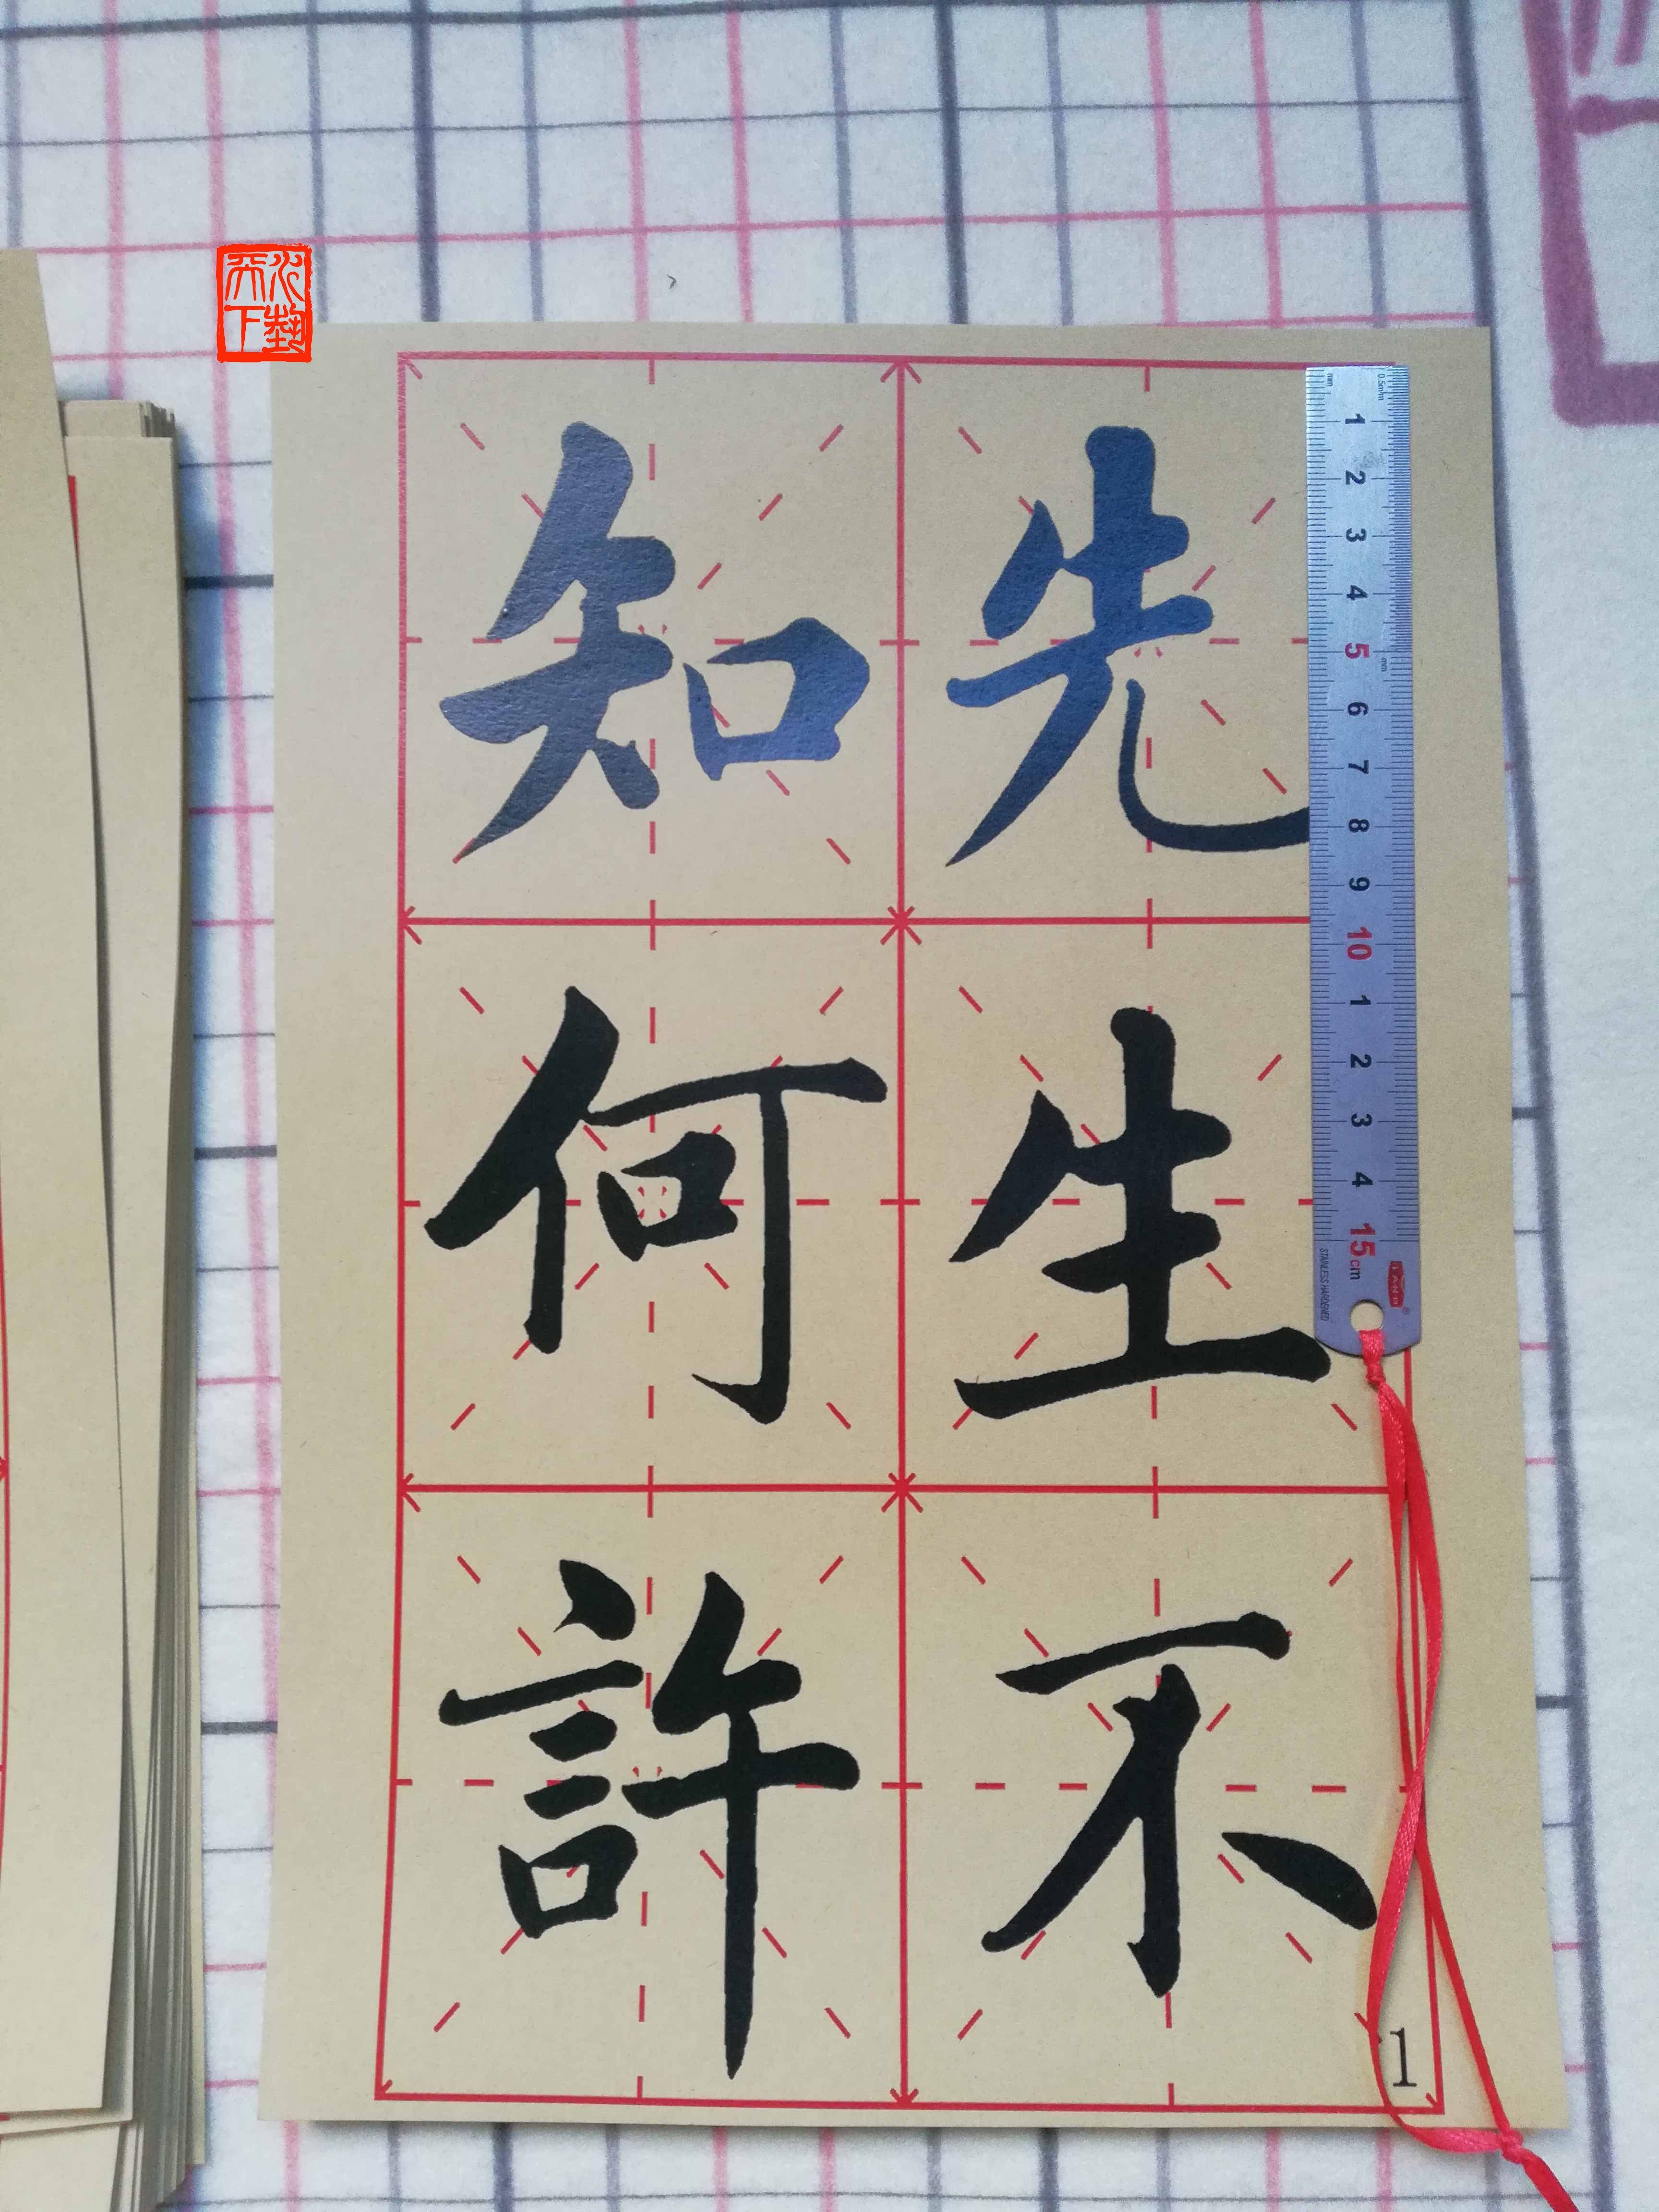 先生不
知何許
1
mm
0.5mm
1 2 3 4 5 6 7 8 9 10 1 2 3 4 15cm
mm
STAINLESS HARDENED
天下